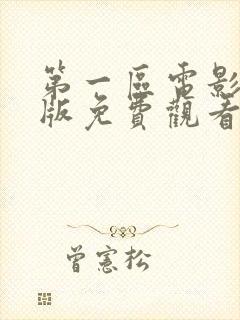 第一區電影
版免費觀看
曾憲松